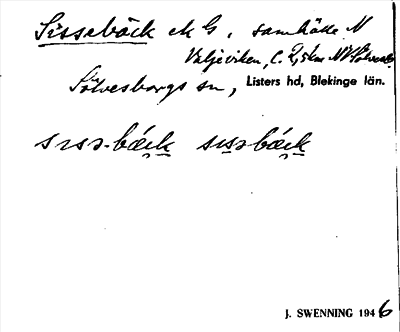 Sissebäck ek G, samhälle N
Valjeviken, c. 2,5 km NV Sölvesb.
Sölvesborgs sn, Listers hd, Blekinge län.
sɪsə-bæ̀ck sɪsəbæ̀ck
J. SWENNING 1946